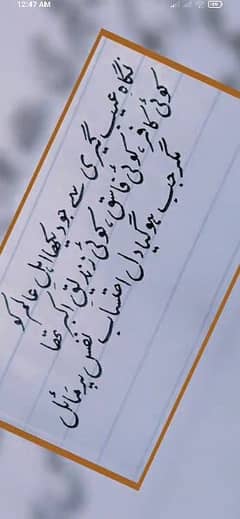 12:47 AM
نگاہ عیب گیری سے جو دیکھا اہل عالم کو
کوئی کافر، کوئی فاسق، کوئی زندیق اکبر تھا
مگر جب ہو گیا دل احتساب نفس پر مائل